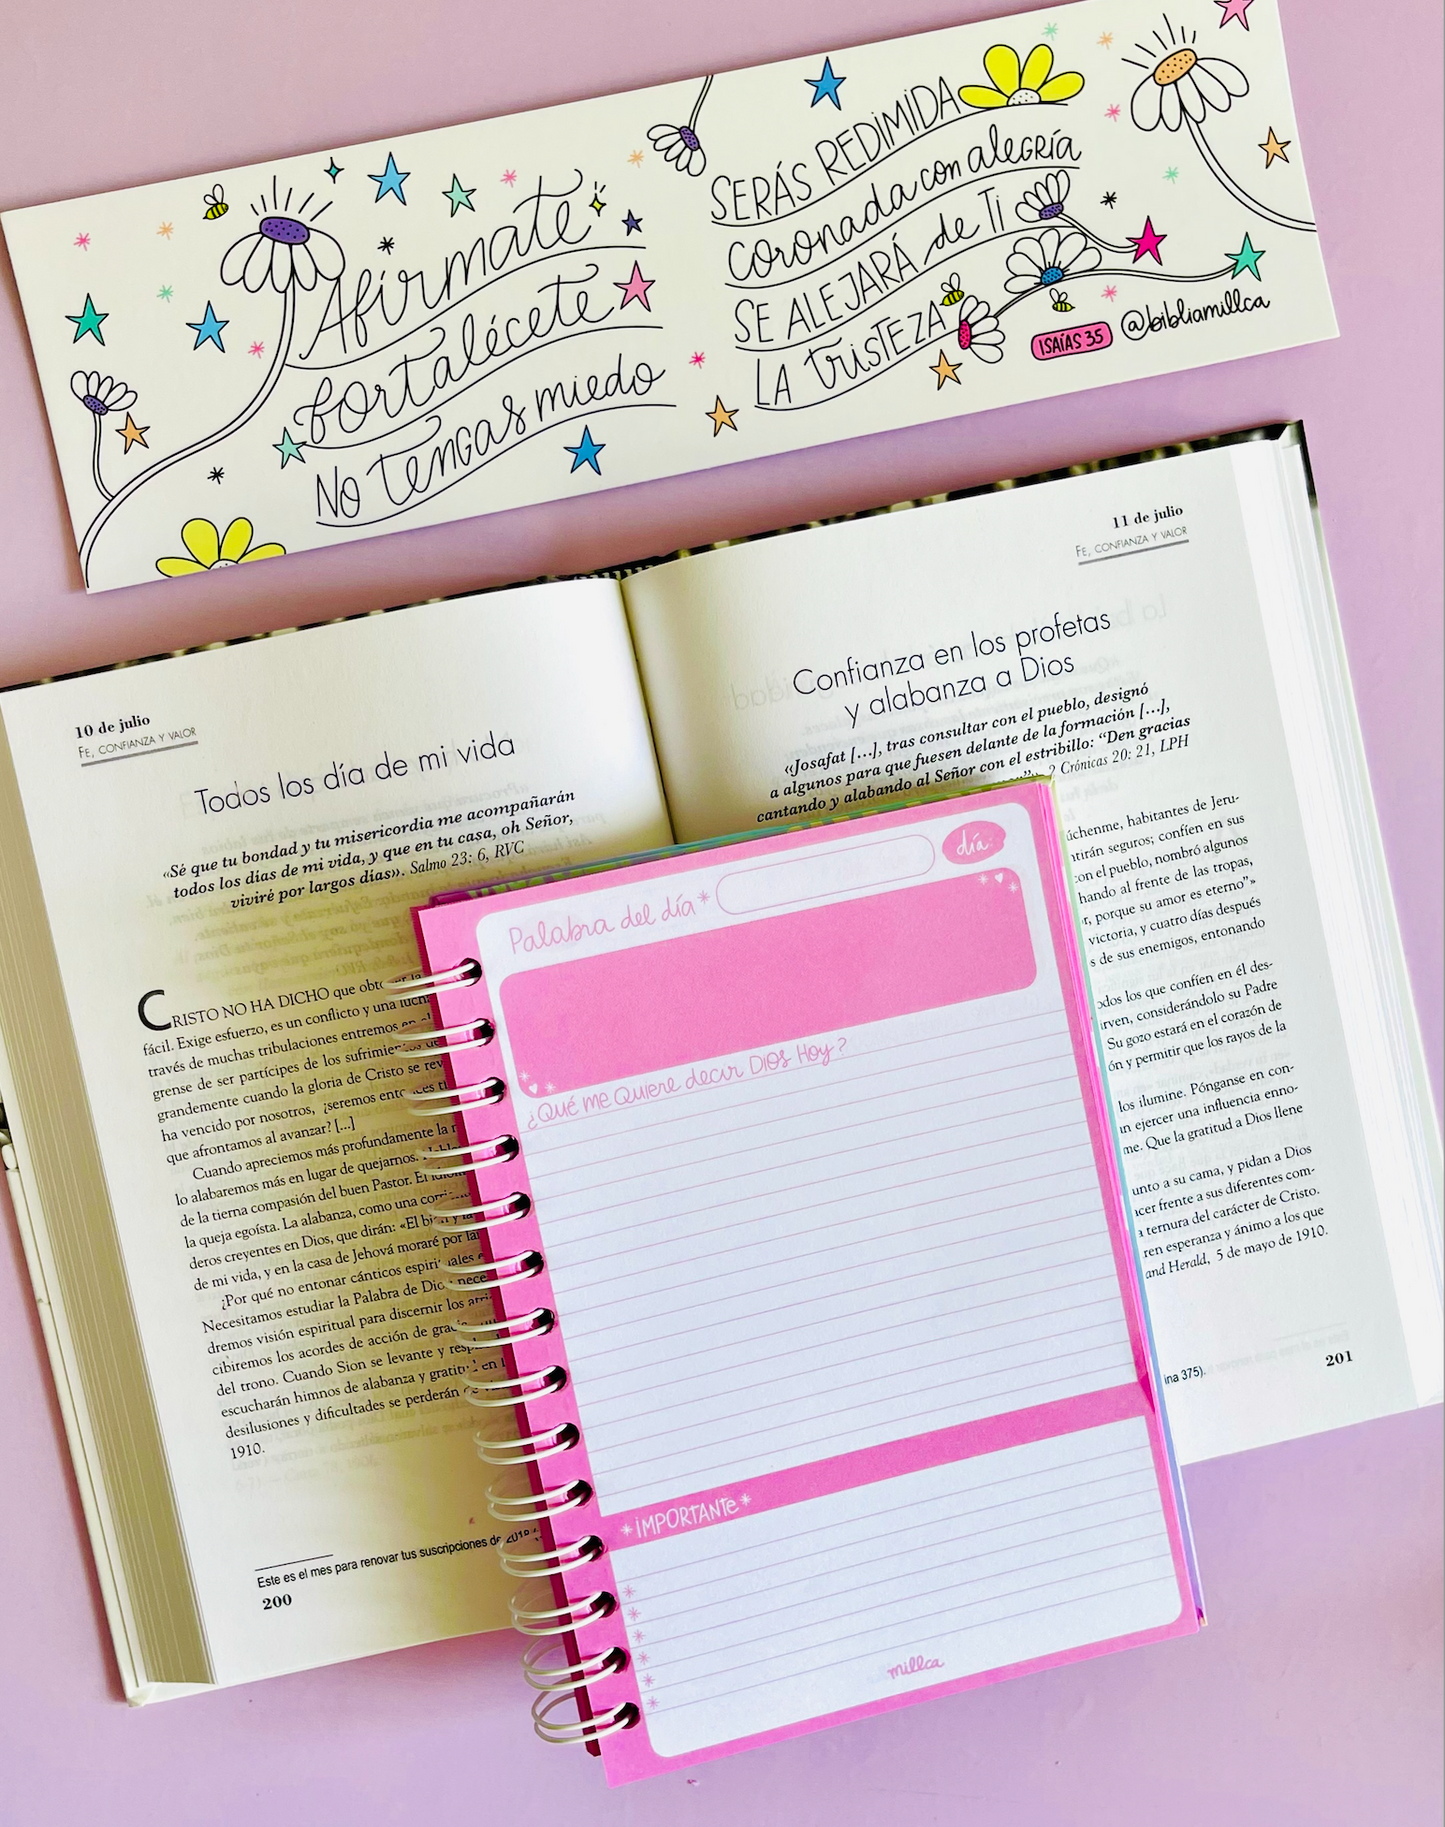 Afírmate
fortalécete
No tengas miedo
SERÁS REDIMIDA
coronada con alegría
SE ALEJARÁ de Ti
LA tristeza
ISAÍAS 35
@bibliamillca
10 de julio
FE, CONFIANZA Y VALOR
Todos los día de mi vida
«Sé que tu bondad y tu misericordia me acompañarán
todos los días de mi vida, y que en tu casa, oh Señor,
viviré por largos días». Salmo 23: 6, RVC
CRISTO NO HA DICHO que obtener la
fácil. Exige esfuerzo, es un conflicto y una lucha
través de muchas tribulaciones entremos en
grense de ser partícipes de los sufrimientos de
grandemente cuando la gloria de Cristo se rev
ha vencido por nosotros, ¿seremos entonces
que afrontamos al avanzar? [...]
Cuando apreciemos más profundamente la
lo alabaremos más en lugar de quejarnos.
de la tierna compasión del buen Pastor. El idioma
la queja egoísta. La alabanza, como una corriente
deros creyentes en Dios, que dirán: «El bien y la
de mi vida, y en la casa de Jehová moraré por lar
¿Por qué no entonar cánticos espirituales
Necesitamos estudiar la Palabra de Dios, nece
dremos visión espiritual para discernir los atri
cibiremos los acordes de acción de gracias
del trono. Cuando Sion se levante y resp
escucharán himnos de alabanza y gratitud en
desilusiones y dificultades se perderán
1910.
Este es el mes para renovar tus suscripciones de 2018
200
11 de julio
FE, CONFIANZA Y VALOR
Confianza en los profetas
y alabanza a Dios
«Josafat [...], tras consultar con el pueblo, designó
a algunos para que fuesen delante de la formación [...],
cantando y alabando al Señor con el estribillo: “Den gracias
2 Crónicas 20: 21, LPH
úchenme, habitantes de Jeru-
ntirán seguros; confíen en sus
con el pueblo, nombró algunos
hando al frente de las tropas,
r, porque su amor es eterno"»
victoria, y cuatro días después
s de sus enemigos, entonando
odos los que confíen en él des-
irven, considerándolo su Padre
Su gozo estará en el corazón de
ón y permitir que los rayos de la
los ilumine. Pónganse en con-
un ejercer una influencia enno-
me. Que la gratitud a Dios llene
unto a su cama, y pidan a Dios
acer frente a sus diferentes com-
a ternura del carácter de Cristo.
ren esperanza y ánimo a los que
and Herald, 5 de mayo de 1910.
ina 375).
201
día:
Palabra del día*
¿Qué me Quiere decir Dios Hoy?
*iMPORTANTE*
millca